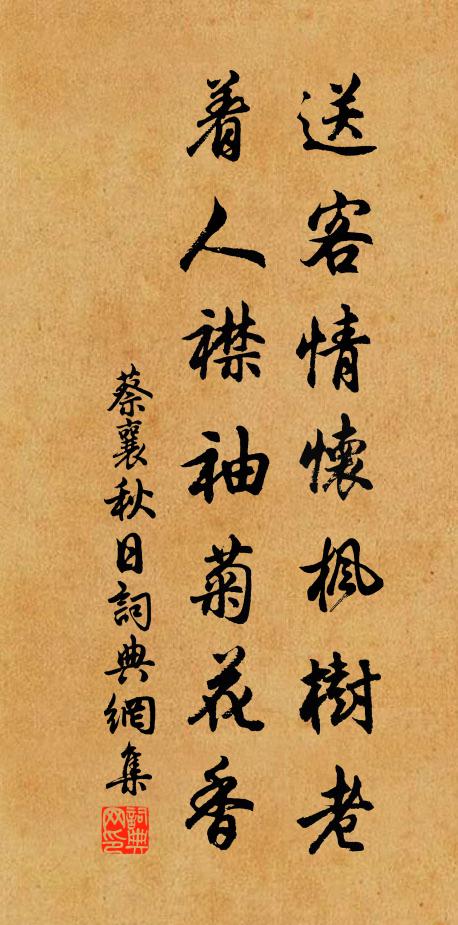 送客情懷楓樹老
着人襟袖菊花香
蔡襄秋日詞典網集
詞典网印